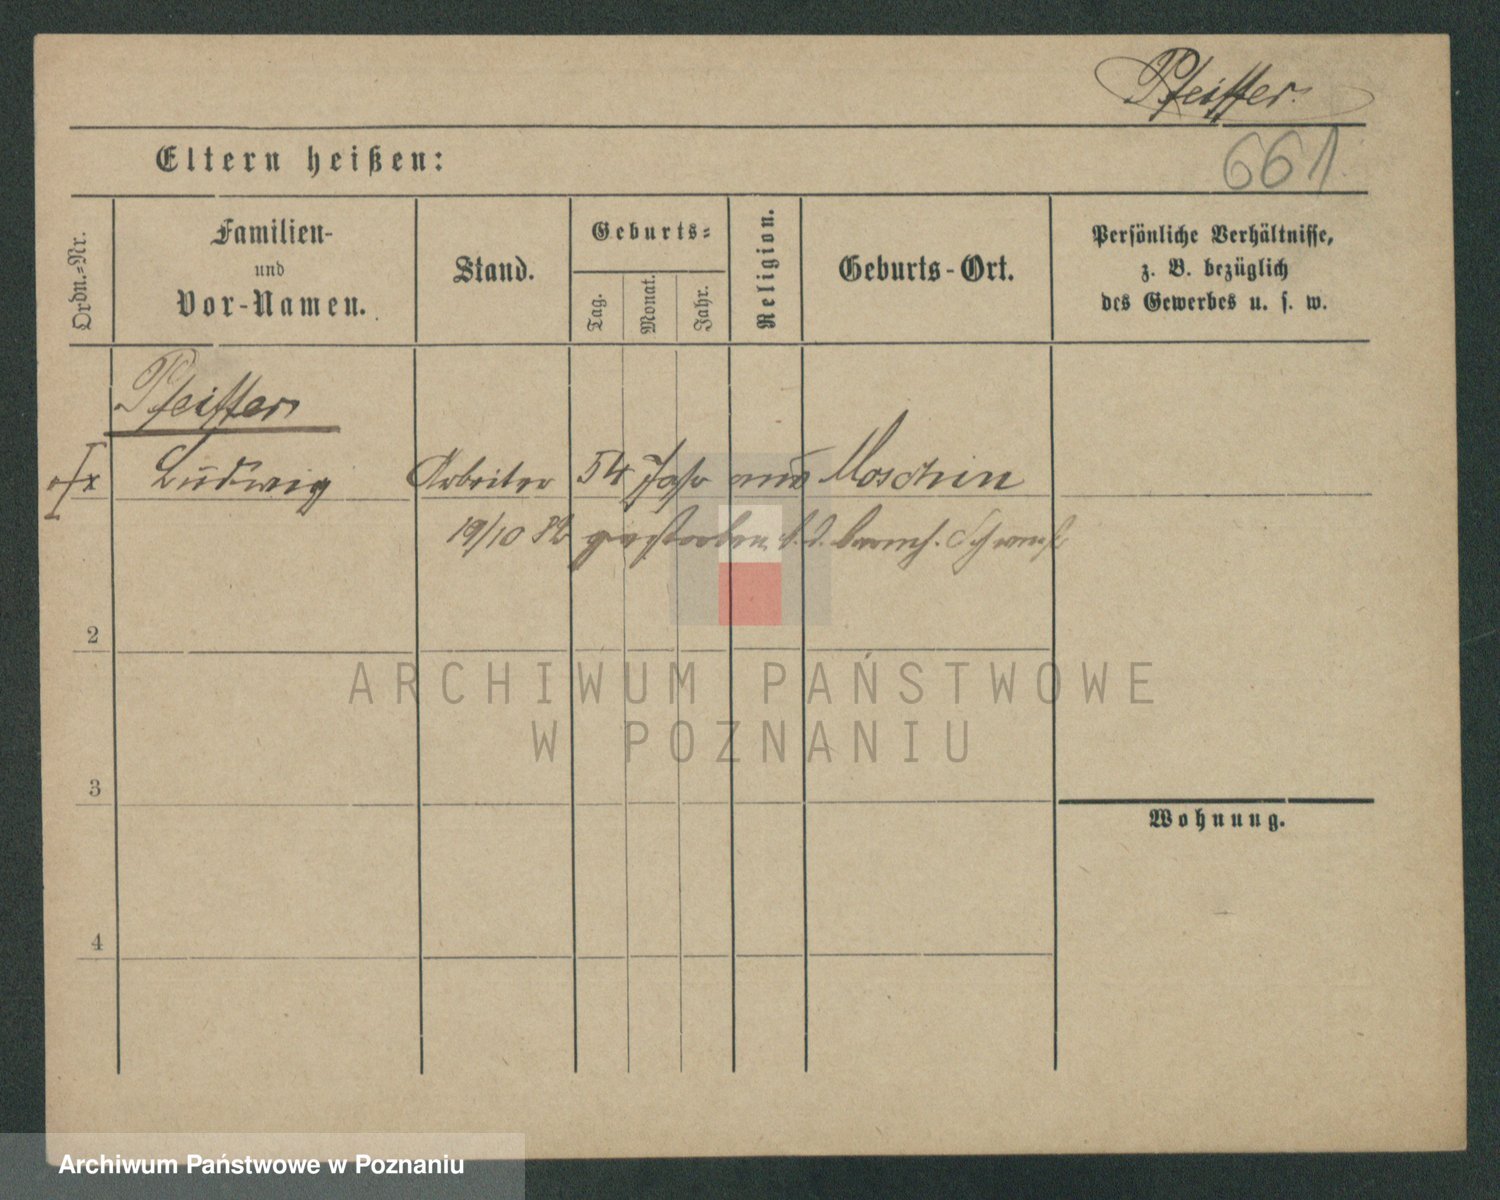 Pfeiffer.
661
Eltern heißen:
Ordn.-Nr.
Familien-
und
Vor-Namen.
Stand.
Geburts-
Tag.
Monat.
Jahr.
Religion.
Geburts-Ort.
Persönliche Verhältnisse,
z. B. bezüglich
des Gewerbes u. s. w.
Pfeiffer
Ludwig Arbeiter 54 Jahr aus Moschin
19/10 82 gestorben b. d. barmh. Schwest
2
3
4
Wohnung.
ARCHIWUM PAŃSTWOWE
W POZNANIU
Archiwum Państwowe w Poznaniu